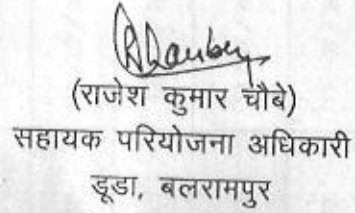 (राजेश कुमार चौबे)
सहायक परियोजना अधिकारी
डूडा, बलरामपुर